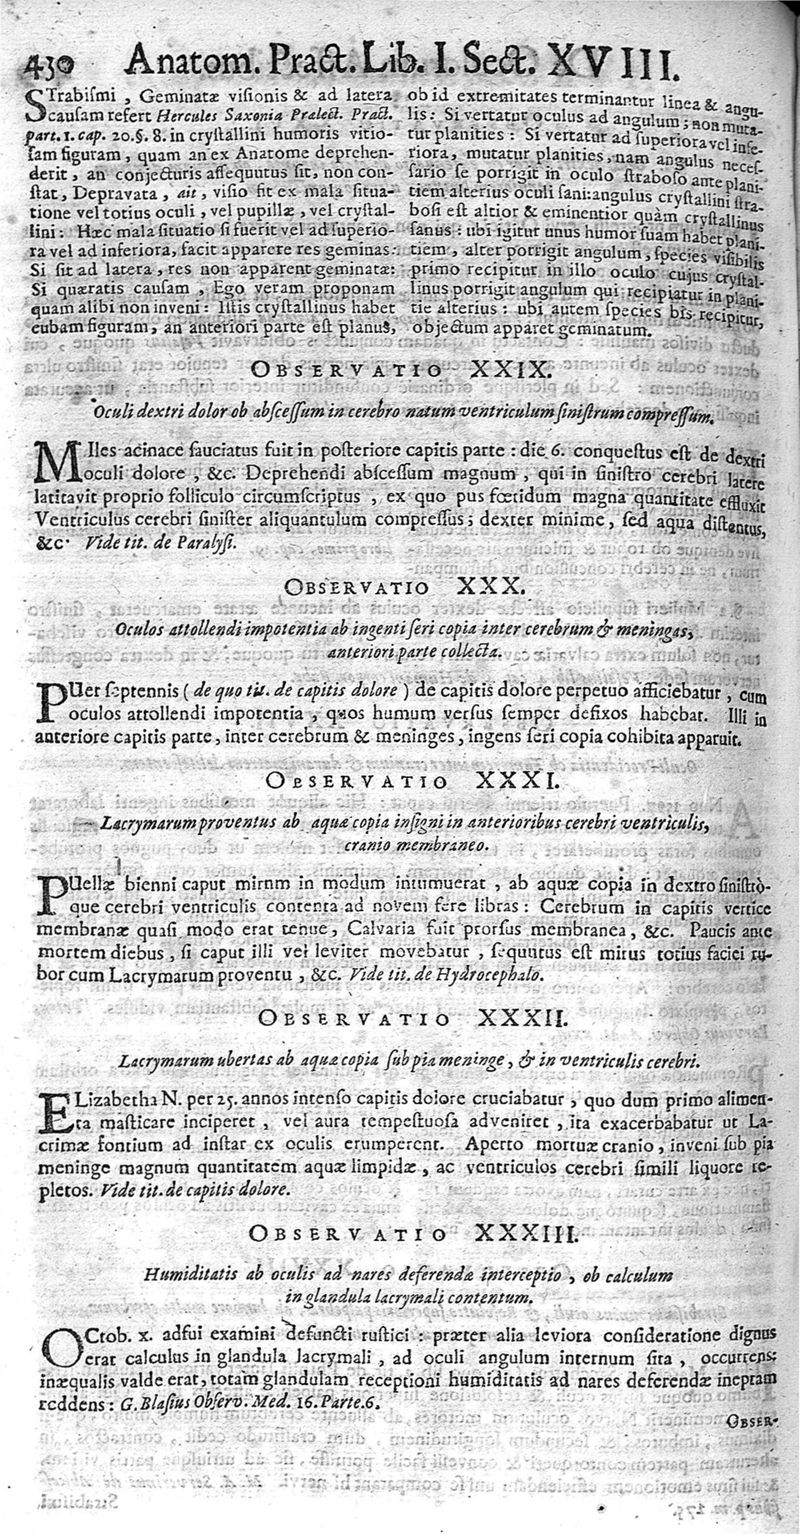 430 Anatom. Pract. Lib. I. Sect. XVIII.
STrabiſmi, Geminatæ viſionis & ad latera
cauſam refert Hercules Saxonia Prælect. Pract.
part. 1. cap. 20. §. 8. in cryſtallini humoris vitio-
ſam figuram, quam an ex Anatome deprehen-
derit, an conjecturis aſſequutus ſit, non con-
ſtat, Depravata, ait, viſio fit ex mala ſitua-
tione vel totius oculi, vel pupillæ, vel cryſtal-
lini: Hæc mala ſituatio ſi fuerit vel ad ſuperio-
ra vel ad inferiora, facit apparere res geminas:
Si ſit ad latera, res non apparent geminatæ:
Si quæratis cauſam, Ego veram proponam
quam alibi non inveni: Iſtis cryſtallinus habet
cubam figuram, an anteriori parte eſt planus,
ob id extremitates terminantur linea & angu-
lis: Si vertatur oculus ad angulum; non muta-
tur planities: Si vertatur ad ſuperiora vel infe-
riora, mutatur planities, nam angulus neceſ-
ſario ſe porrigit in oculo ſtraboſo ante plani-
tiem alterius oculi ſani: angulus cryſtallini ſtra-
boſi eſt altior & eminentior quàm cryſtallinus
ſanus: ubi igitur unus humor ſuam habet plani-
tiem, alter porrigit angulum, ſpecies viſibilis
primo recipitur in illo oculo cujus cryſtal-
linus porrigit angulum qui recipiatur in plani-
tie alterius: ubi autem ſpecies bis recipitur,
objectum apparet geminatum.
OBSERVATIO XXIX.
Oculi dextri dolor ob abſceſſum in cerebro natum ventriculum ſiniſtrum compreſſum.
MIles acinace ſauciatus fuit in poſteriore capitis parte: die 6. conqueſtus eſt de dextri
oculi dolore, &c. Deprehendi abſceſſum magnum, qui in ſiniſtro cerebri latere
latitavit proprio folliculo circumſcriptus, ex quo pus fœtidum magna quantitate effluxit
Ventriculus cerebri ſiniſter aliquantulum compreſſus; dexter minime, ſed aqua diſtentus,
&c. Vide tit. de Paralyſi.
OBSERVATIO XXX.
Oculos attollendi impotentia ab ingenti ſeri copia inter cerebrum & meningas,
anteriori parte collecta.
PUer ſeptennis (de quo tit. de capitis dolore) de capitis dolore perpetuo afficiebatur, cum
oculos attollendi impotentia, quos humum verſus ſemper defixos habebat. Illi in
anteriore capitis parte, inter cerebrum & meninges, ingens ſeri copia cohibita apparuit.
OBSERVATIO XXXI.
Lacrymarum proventus ab aquæ copia inſigni in anterioribus cerebri ventriculis,
cranio membraneo.
PUellæ bienni caput mirum in modum intumuerat, ab aquæ copia in dextro ſiniſtrò-
que cerebri ventriculis contenta ad novem fere libras: Cerebrum in capitis vertice
membranæ quaſi modo erat tenue, Calvaria fuit prorſus membranea, &c. Paucis ante
mortem diebus, ſi caput illi vel leviter movebatur, ſequutus eſt mirus totius faciei ru-
bor cum Lacrymarum proventu, &c. Vide tit. de Hydrocephalo.
OBSERVATIO XXXII.
Lacrymarum ubertas ab aquæ copia ſub pia meninge, & in ventriculis cerebri.
ELizabetha N. per 25. annos intenſo capitis dolore cruciabatur, quo dum primo alimen-
ta maſticare inciperet, vel aura tempeſtuoſa adveniret, ita exacerbabatur ut La-
crimæ fontium ad inſtar ex oculis erumperent. Aperto mortuæ cranio, inveni ſub pia
meninge magnum quantitatem aquæ limpidæ, ac ventriculos cerebri ſimili liquore re-
pletos. Vide tit. de capitis dolore.
OBSERVATIO XXXIII.
Humiditatis ab oculis ad nares deferendæ interceptio, ob calculum
in glandula lacrymali contentum.
OCtob. x. adfui examini defuncti ruſtici: præter alia leviora conſideratione dignus
erat calculus in glandula lacrymali, ad oculi angulum internum ſita, occurrens;
inæqualis valde erat, totam glandulam receptioni humiditatis ad nares deferendæ ineptam
reddens: G. Blaſius Obſerv. Med. 16. Parte. 6.
OBSER-